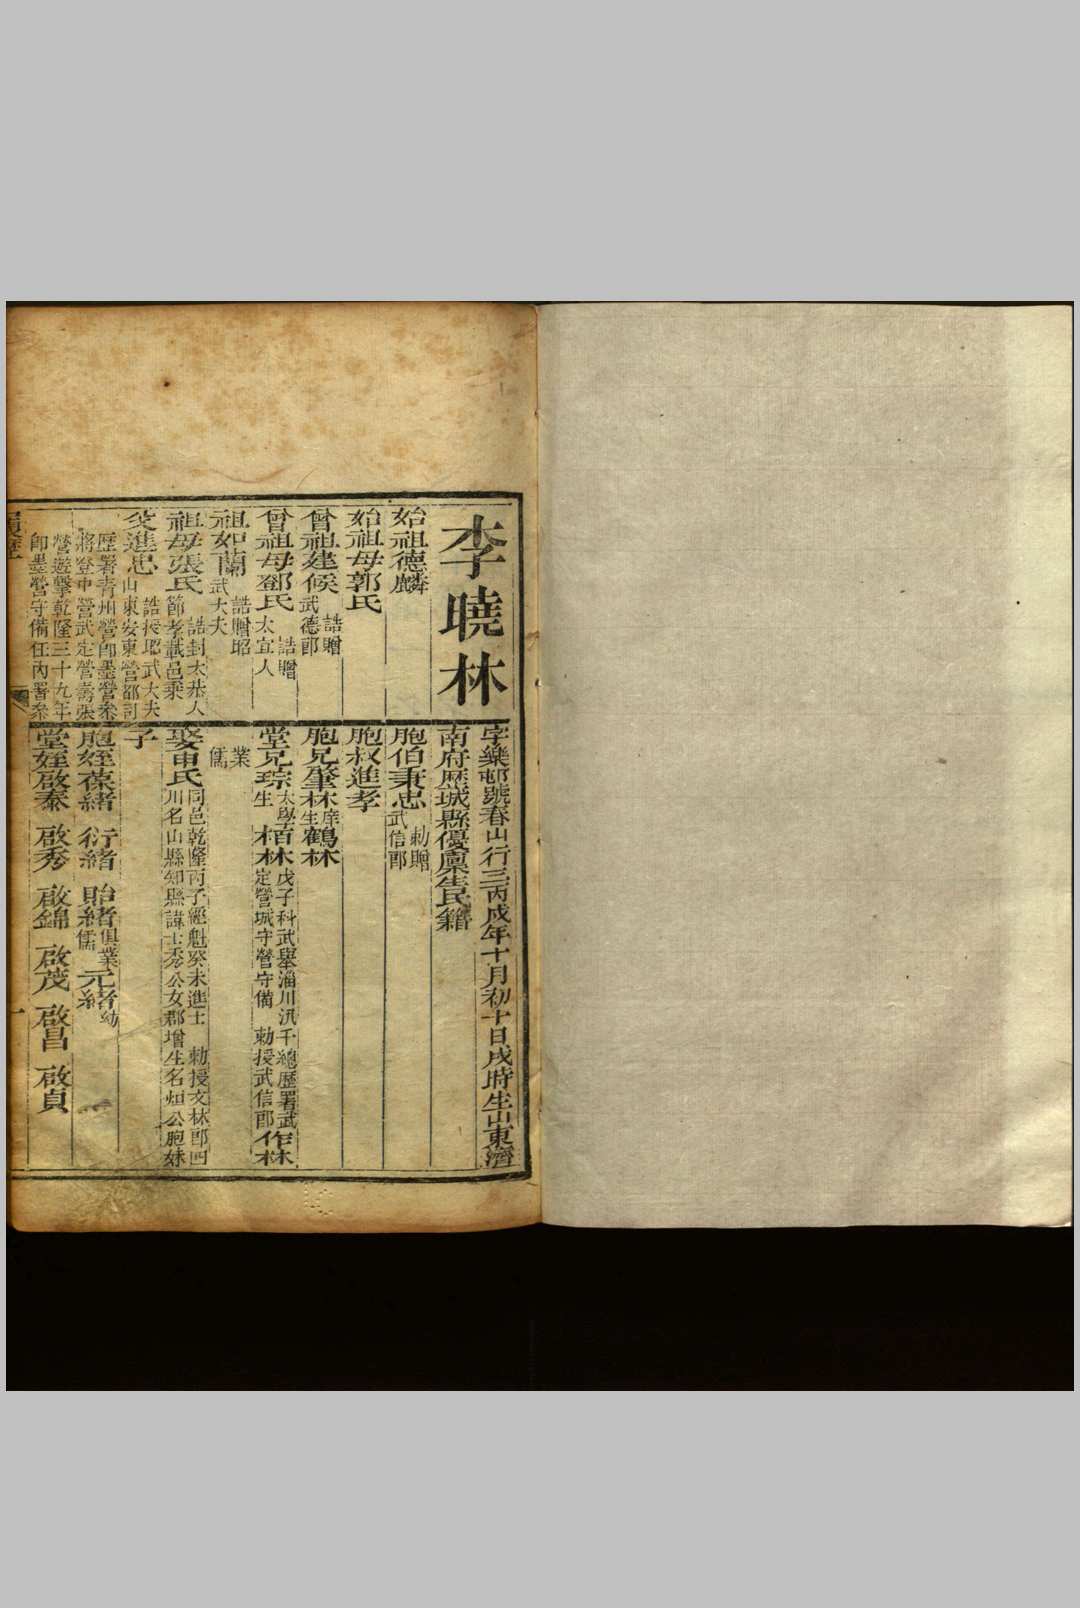 李曉林
字樂邨號春山行三丙戌年十月初十日戌時生山東濟
南府歷城縣優廩生民籍
始祖德麟
始祖母郭氏
曾祖建侯 誥贈武德郎
曾祖母鄧氏 誥贈太宜人
祖如蘭 誥贈昭武大夫
祖母張氏 誥封太恭人節孝載邑乘
父進忠 誥授昭武大夫山東安東營都司
歷署青州營即墨營參
將登中營武定營壽張
營遊擊乾隆三十九年
即墨營守備任內署參
胞伯秉忠 勅贈武信郎
胞叔進孝
胞兄肇林庠生鶴林
堂兄琮太學生 栢林戊子科武舉淄川汛千總歷署武定營城守營守備 勅授武信郎作林
業儒
娶申氏同邑乾隆丙子經魁癸未進士 勅授文林郎四川名山縣知縣諱士秀公女郡增生名烜公胞妹
子
胞姪葆緒 衍緒 貽緒俱業儒元緒幼
堂姪啟泰 啟秀 啟錦 啟茂 啟昌 啟貞
履歷
一